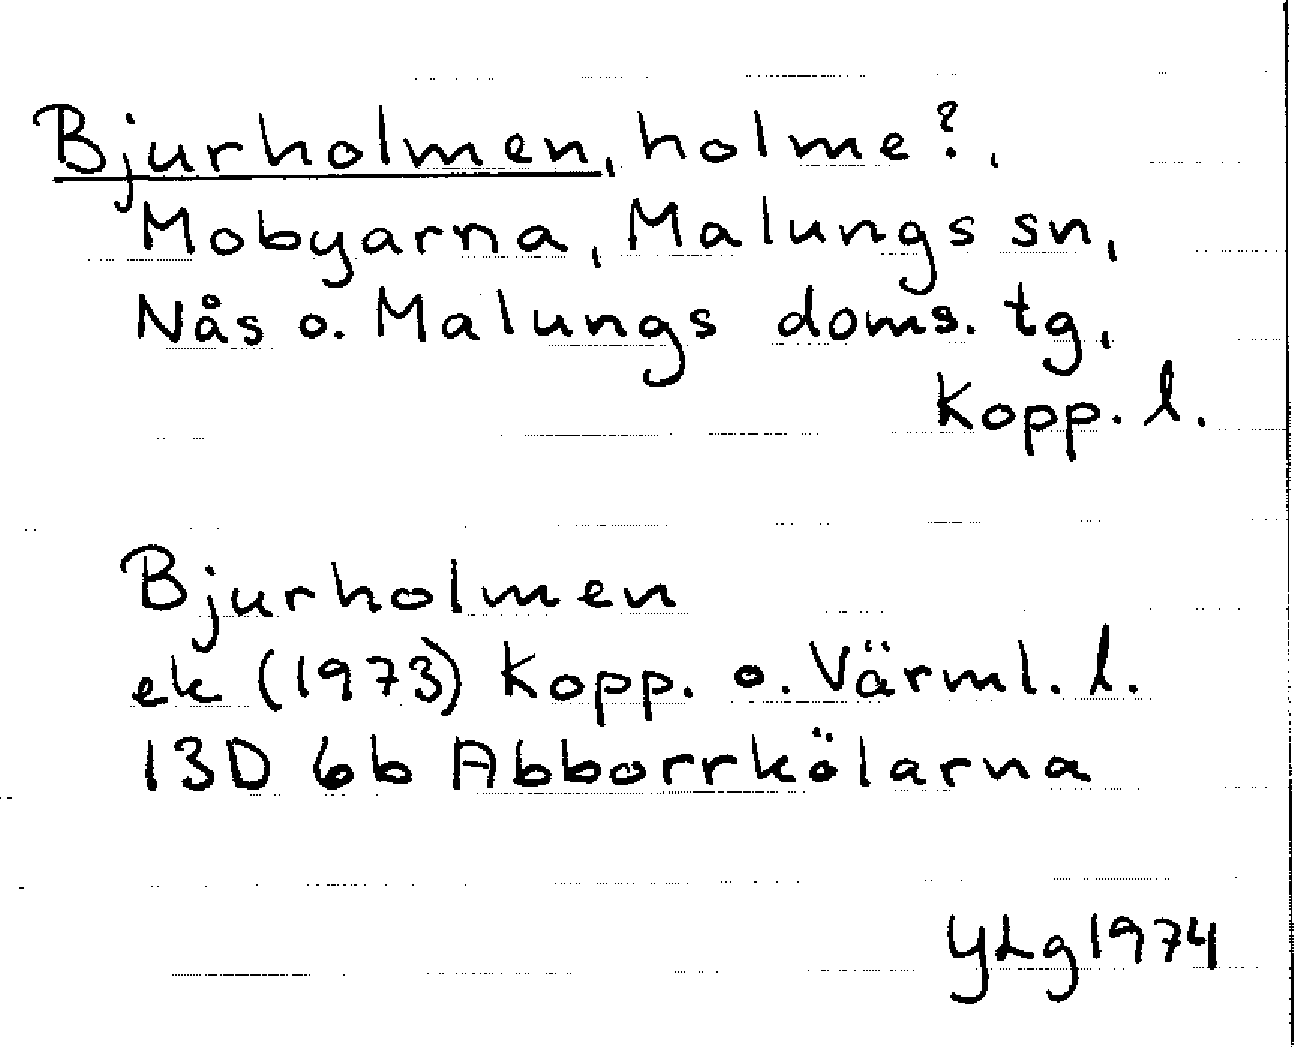 Bjurholmen, holme?,
Mobyarna, Malungs sn,
Nås o. Malungs doms. tg,
Kopp. l.
Bjurholmen
ek (1973) Kopp. o. Värml. l.
13D 6b Abborrkölarna
YLg 1974